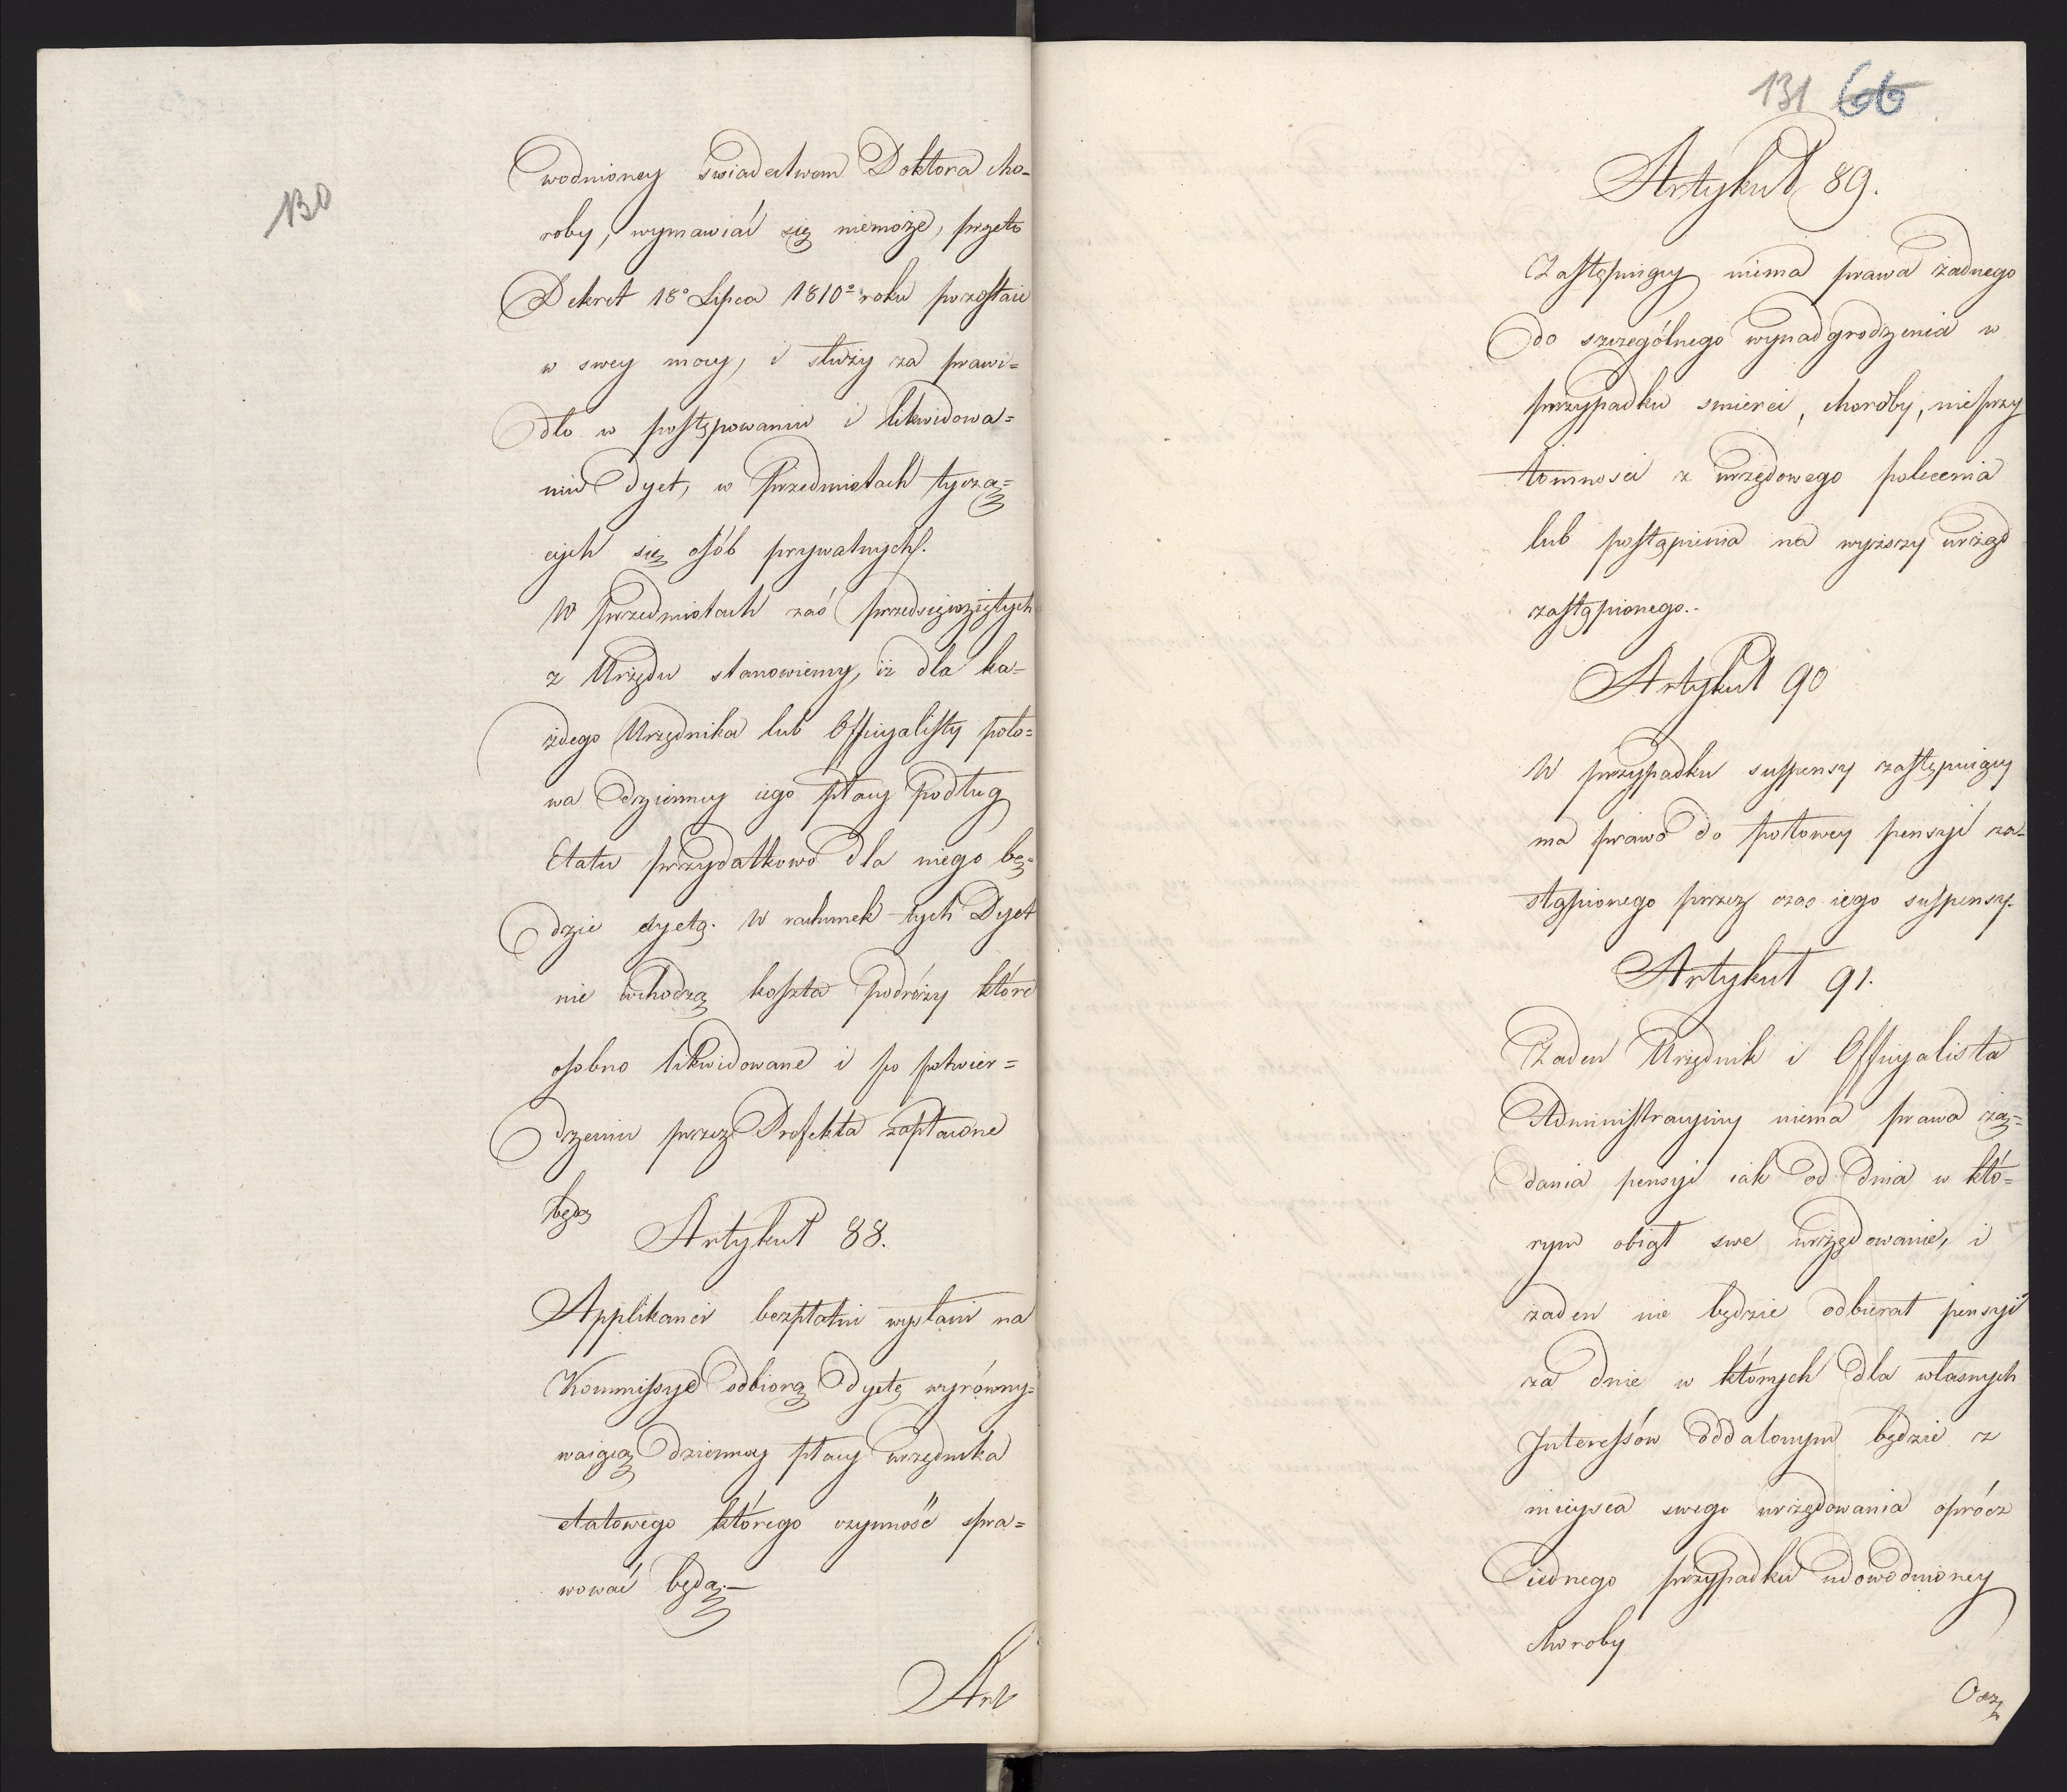 130
wodnioney świadectwem Doktora cho-
roby, wymawiać się niemoże, przeto
Dekret 18° Lipca 1810° roku pozostaie
w swey mocy, i służy za prawi=
dło w postępowaniu i likwidowa=
niu dyet, w Przedmiotach tyczą=
cych się osób prywatnych.
W przedmiotach zaś przedsięwziętych
z Urzędu stanowiemy, iż dla ka-
żdego Urzędnika lub Officyalisty poło=
wa dzienney iego płacy podług
Etatu przydatkowo dla niego bę=
dzie dyetą. W rachunek tych Dyet
nie wchodzą koszta podróży które
osobno likwidowane i po potwier=
dzeniu przez Prefekta zapłacone
będą
Artykuł 88.
Applikanci bezpłatni wysłani na
Kommissye odbiorą dyetę wyrówny=
waiącą dzienney płacy urzędnika
etatowego którego czynność spra=
wować będą.—
Art
131 66
Artykuł 89.
Zastępuiący niema prawa żadnego
do szczególnego wynadgrodzenia w
przypadku smierci, choroby, nieprzy
tomnosci z urzędowego polecenia
lub postąpienia na wyższy urząd
zastąpionego.-
Artykuł 90
W przypadku suspensy zastępuiący
ma prawo do połowey pensyi za-
stąpionego przez czas iego suspensy.
Artykuł 91.
Żaden Urzędnik i Officyalista
Administracyiny niema prawa żą=
dania pensyi iak od dnia w któ=
rym obiął swe urzędowanie, i
żaden nie będzie odbierał pensyi
za dnie w których dla własnych
Interessów oddalonym będzie z
mieysca swego urzędowania oprócz
iednego przypadku udowodnioney
choroby